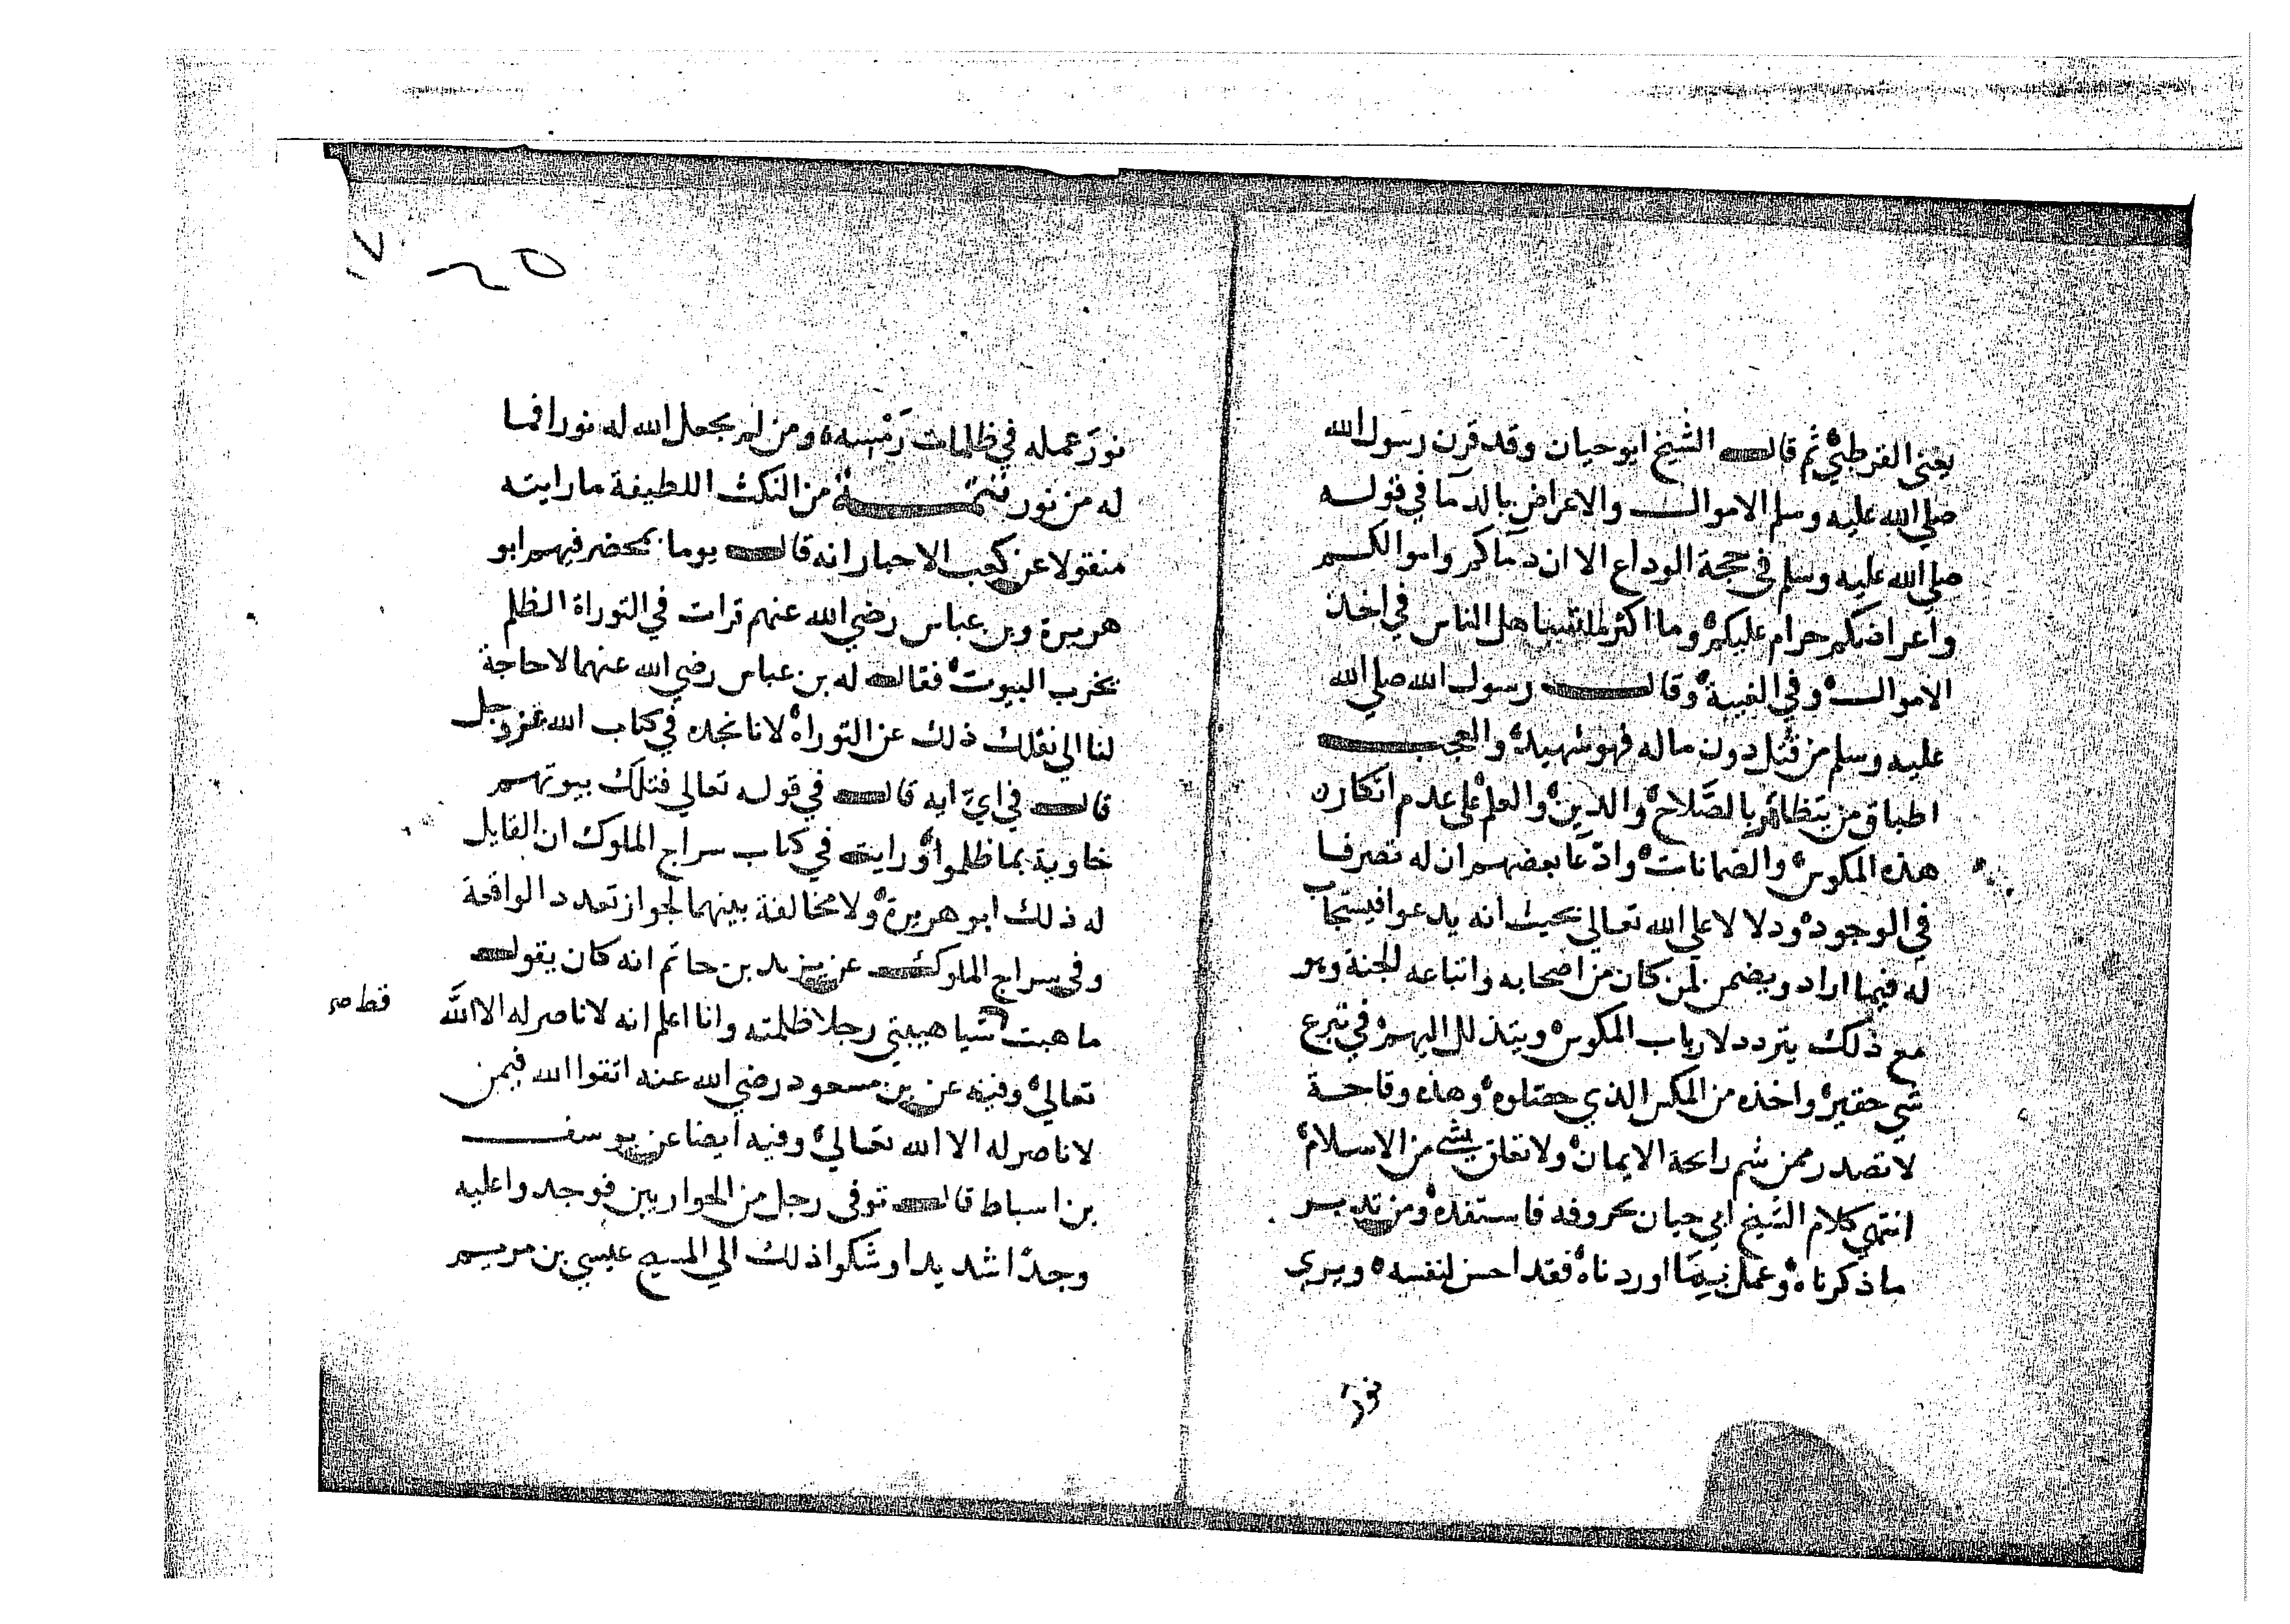 يعني القرطبي ثم قال الشيخ ابو حيان وقد قرن رسول الله
صلي الله عليه وسلم الاموال والاعراض بالدما في قوله
صلي الله عليه وسلم في حجة الوداع الا ان دماكم واموالكم
واعراضكم حرام عليكم وما اكثر تساهل الناس في اخذ
الاموال وفي الغيبة وقال رسول الله صلي الله
عليه وسلم من قتل دون ماله فهو شهيد والعجب
اطباق من يتظاهر بالصلاح والدين والعلم علي عدم انكار
هذه المكوس والضمانات وادعا بعضهم ان له تصرفا
في الوجود ودلالا علي الله تعالي بحيث انه يدعوا فيستجاب
له فيما اراد ويضمن لمن كان من اصحابه واتباعه الجنة وهو
مع ذلك يتردد لارباب المكوس ويتذلل اليهم في نزع
شي حقير واخذه من المكس الذي حصلوه وهذه وقاحة
لا تصدر ممن شم رايحة الايمان ولا تعلق بشي من الاسلام
انتهي كلام الشيخ ابي حيان بحروفه فاستفده ومن تدبر
ما ذكرناه وعمل بما اوردناه فقد احسن لنفسه ويري
نور
١٧ ٢٥
نور عمله في ظلمات رمسه ومن لم يجعل الله له نورا فما
له من نور تتمة من النكت اللطيفة ما رايته
منقولا عن كعب الاحبار انه قال يوما بمحضر فيهم ابو
هريرة وبن عباس رضي الله عنهم قرات في التوراة الظلم
يخرب البيوت فقال له بن عباس رضي الله عنهما لا حاجة
لنا الي نقلك ذلك عن التوراة لانا نجده في كتاب الله عز وجل
قال في اي اية قال في قوله تعالي فتلك بيوتهم
خاوية بما ظلموا ورايت في كتاب سراج الملوك ان القايل
له ذلك ابو هريرة ولا مخالفة بينهما لجواز تعدد الواقعة
وفي سراج الملوك عن يزيد بن حاتم انه كان يقول
ما هبت شيا هيبتي رجلا ظلمته وانا اعلم انه لا ناصر له الا الله
قط صح
تعالي وفيه عن بن مسعود رضي الله عنه اتقوا الله فيمن
لا ناصر له الا الله تعالي وفيه ايضا عن يوسف
بن اسباط قال توفي رجل من الحواريين فوجدوا عليه
وجدا شديدا وشكوا ذلك الي المسيح عيسي بن مريم